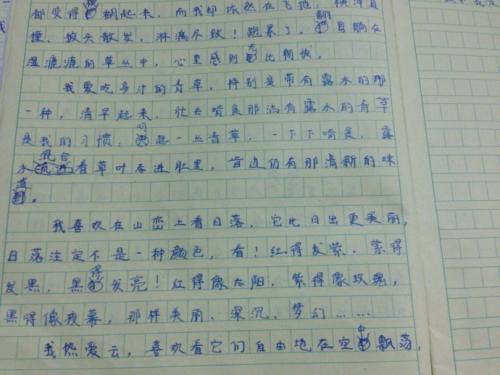 都变得模糊起来，而我却依然在飞跑，横冲直
撞，披头散发，淋漓尽致！跑累了，翻身躺在
湿漉漉的草丛中，心里感到无比畅快。
我爱吃多汁的青草，特别是带有露水的那
一种，清早起来，忙去啃食那沾有露水的青草
是我的习惯，叼起一丛青草，一下下啃食，露
水混合着草叶吞进肚里，齿边仍有那清新的味
道。
我喜欢在山峦上看日落，它比日出更美丽，
日落注定不是一种颜色，看！红得发紫，紫得
发黑，黑得发亮！红得像太阳，紫得像玫瑰，
黑得像夜幕，那样美丽、深沉、梦幻……
我热爱云，喜欢看它们自由地在空中飘荡，